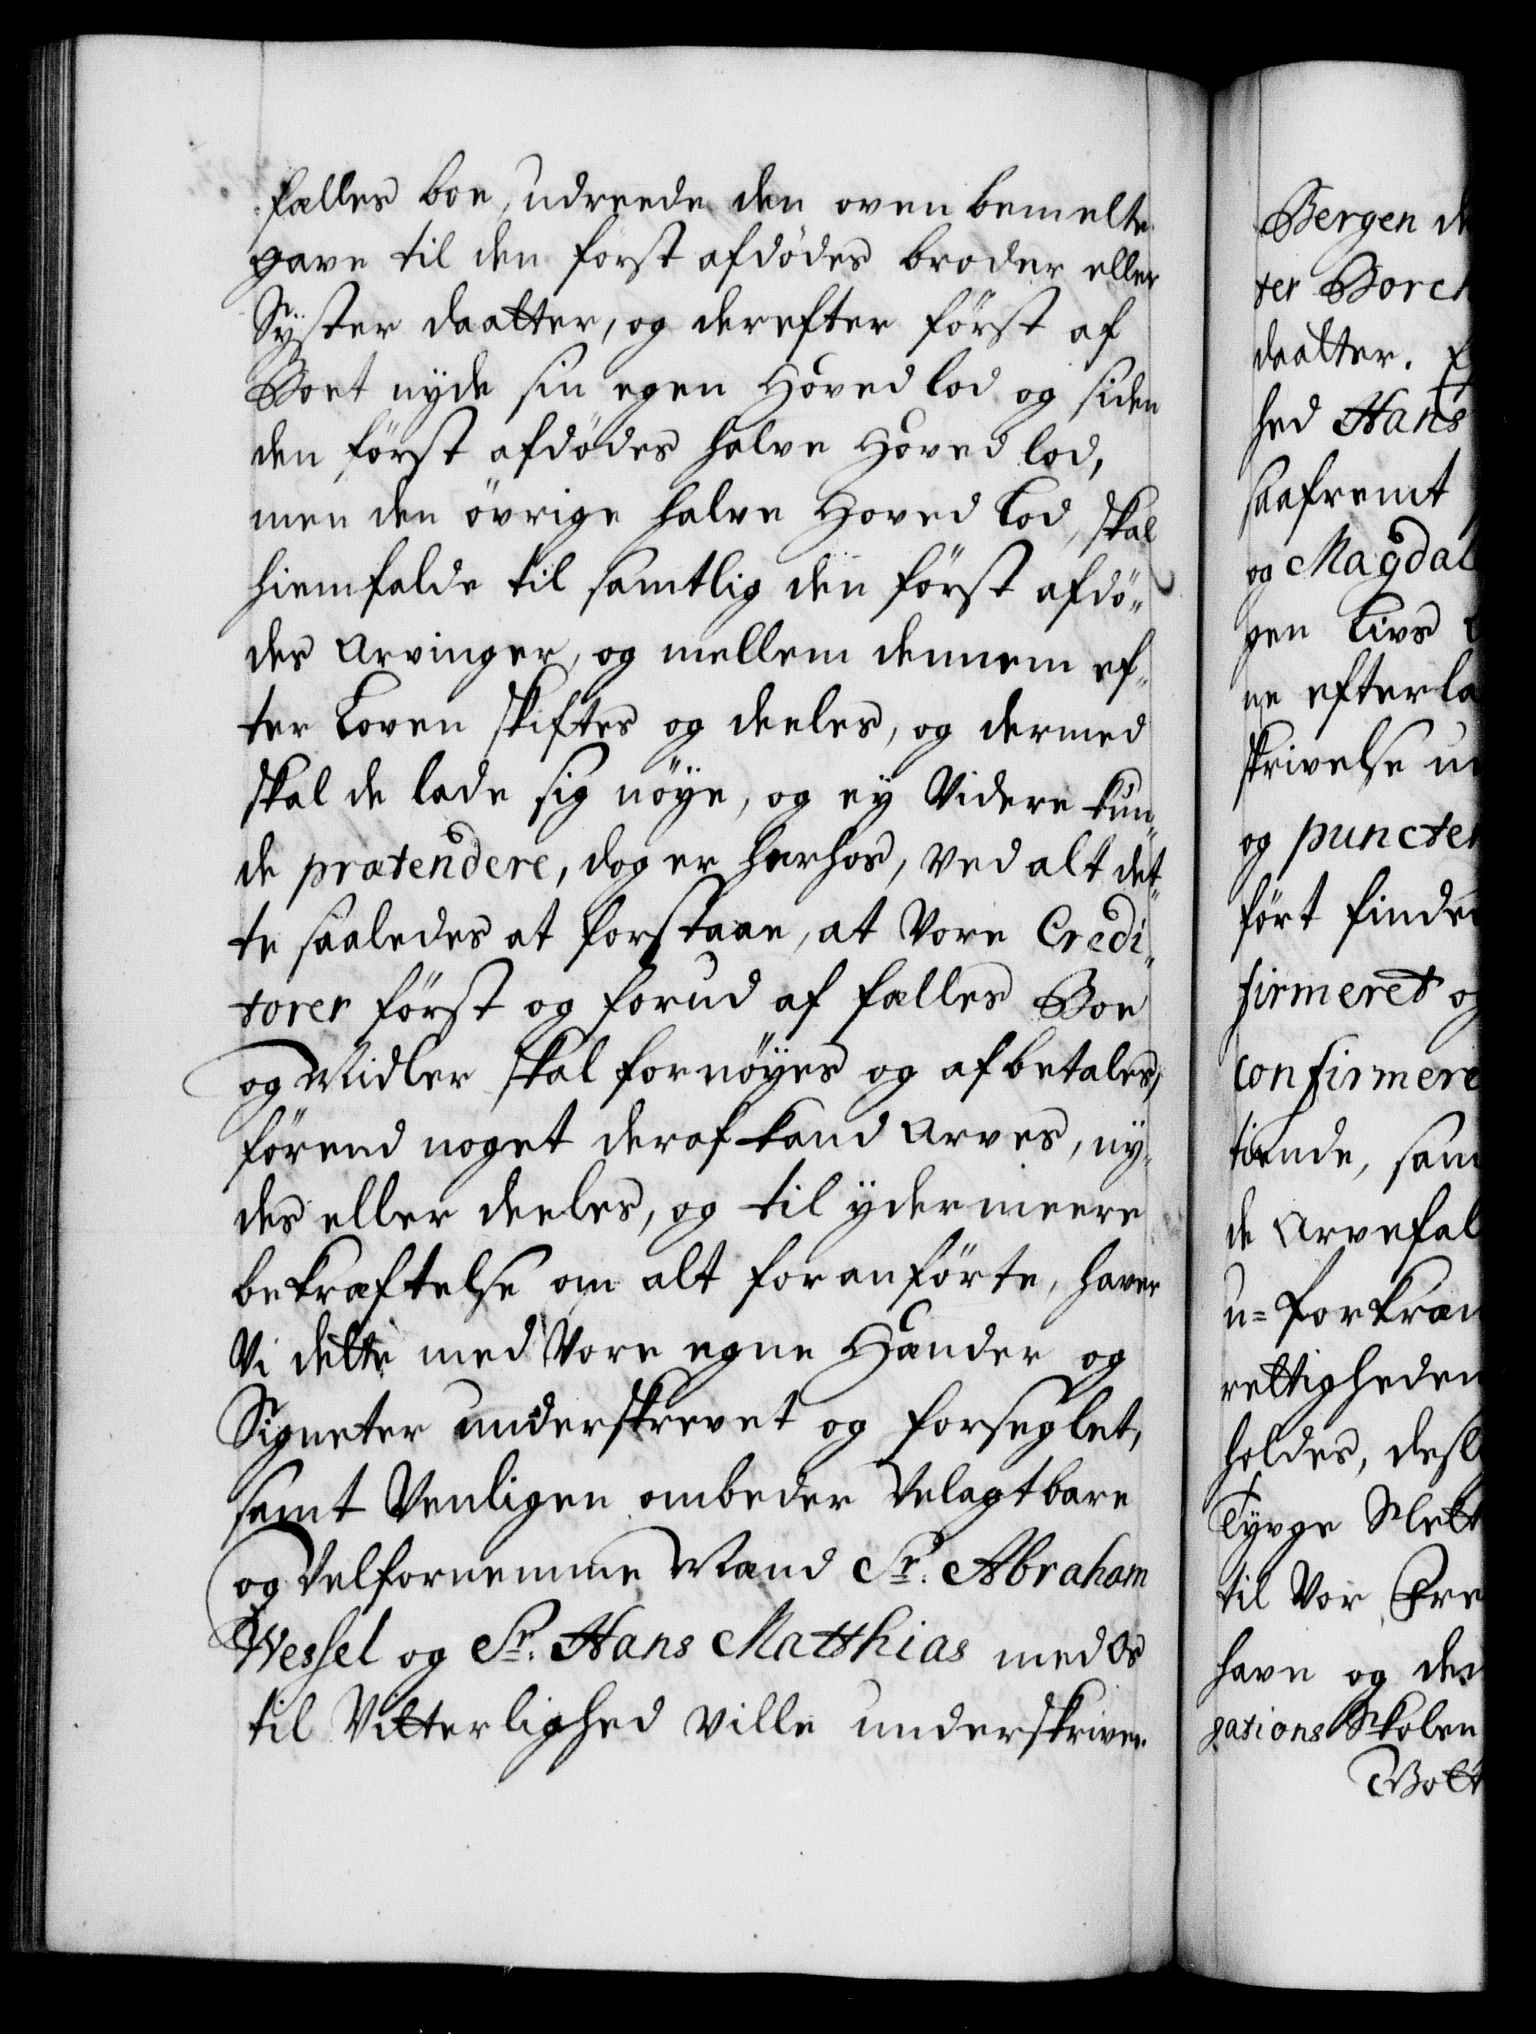 fælles boe, udreede den ovenbemelte
gave til den först afdödes broder eller
Syster daatter, og derefter först af
Boet nyde sin egen Hovedlod og siden
den först afdödes halve Hovedlod,
men den övrige halve Hoved Lod, skal
hiemfalde til samtlig den först afdö„
des Arvinger, og mellem dennem ef„
ter Loven skiftes og deeles, og dermed
skal de lade sig nöÿe, og eÿ Videre kun„
de prætendere, dog er herhos, ved alt det„
te saaledes at forstaae, at Vore Credi„
torer först og forud af fælles Boe
og Midler skal fornöÿes og afbetales,
förend noget deraf kand Arves, ny„
des eller deeles, og til ÿdermeere
bekræftelse om alt foranförte, haver
Vi dette med Vore egne Hænder og
Signeter underskrevet og forseglet,
samt Venligen ombeder Velagtbare
og Velfornemme Mænd Sr. Abraham
Wessel og Sr. Hans Matthias med Os
til Vitterlighed ville underskrive.
Bergen de
ter Borch
daatter.
hed Hans
saafremt
og Magdal
gen Livs
ne efterla
skrivelse u
og puncter
fört finde
firmeret og
confirmere
tiende, sam
de Arvefal
u=forkræn
rettigheden
holdes, desl
Tyvge Slett
til Vor Fre
havn og den
gations Skolen
Volt